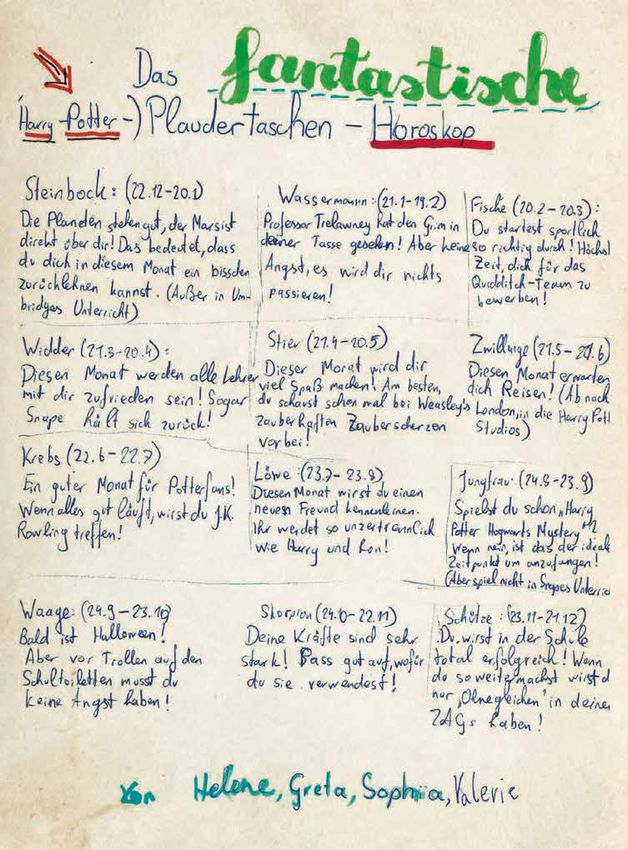 Das fantastische
(Harry-Potter-) Plaudertaschen-Horoskop
Steinbock: (22.12-20.1)
Die Planeten stehen gut, der Mars ist
direkt über dir! Das bedeutet, dass
du dich in diesem Monat ein bisschen
zurücklehnen kannst. (Außer in Um-
bridges Unterricht)
Wassermann: (21.1-19.2)
Professor Trelawney hat den Grim in
deiner Tasse gesehen! Aber keine
Angst, es wird dir nichts
passieren!
Fische (20.2-20.3):
Du startest sportlich
so richtig durch! Höchst
Zeit, dich für das
Quidditch-Team zu
bewerben!
Widder (21.3-20.4):
Diesen Monat werden alle Lehrer
mit dir zufrieden sein! Sogar
Snape hält sich zurück!
Stier (21.4-20.5)
Dieser Monat wird dir
viel Spaß machen! Am besten,
du schaust schon mal bei Weasley's
zauberhaften Zauberscherzen
vorbei!
Zwillinge (21.5-21.6)
Diesen Monat erwarten
dich Reisen! (Ab nach
London, in die Harry Pott
Studios)
Krebs (22.6-22.7)
Ein guter Monat für Potterfans!
Wenn alles gut läuft, wirst du J.K.
Rowling treffen!
Löwe: (23.7-23.8)
Diesen Monat wirst du einen
neuen Freund kennenlernen.
Ihr werdet so unzertrennlich
wie Harry und Ron!
Jungfrau: (24.8-23.9)
Spielst du schon „Harry
Potter Hogwarts Mystery"?
Wenn nein, ist das der ideale
Zeitpunkt um anzufangen!
(Aber spiel nicht in Snapes Unterric
Waage: (24.9-23.10)
Bald ist Halloween!
Aber vor Trollen auf den
Schultoiletten musst du
keine Angst haben!
Skorpion (24.10-22.11)
Deine Kräfte sind sehr
stark! Pass gut auf, wofür
du sie verwendest!
Schütze: (23.11-21.12)
Du wirst in der Schule
total erfolgreich! Wenn
du so weitermachst wirst d
nur „Ohnegleichen" in deinen
ZAGs haben!
Von Helene, Greta, Sophia, Valerie